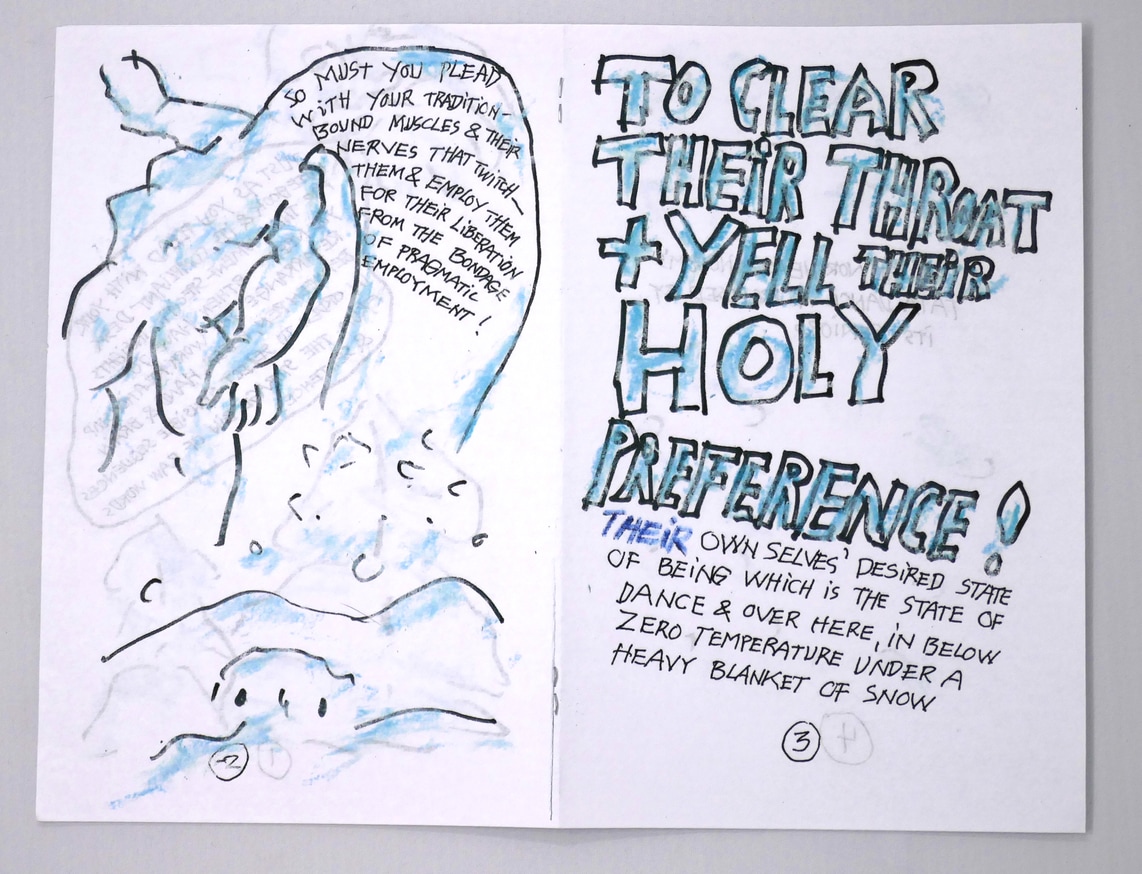 MUST YOU PLEAD
SO WITH YOUR TRADITION-
BOUND MUSCLES & THEIR
NERVES THAT TWITCH—
THEM & EMPLOY THEM
FOR THEIR LIBERATION
FROM THE BONDAGE
OF PRAGMATIC
EMPLOYMENT!
2
TO CLEAR
THEIR THROAT
+ YELL THEIR
HOLY
PREFERENCE!
THEIR OWN SELVES' DESIRED STATE
OF BEING WHICH IS THE STATE OF
DANCE & OVER HERE, IN BELOW
ZERO TEMPERATURE UNDER A
HEAVY BLANKET OF SNOW
3